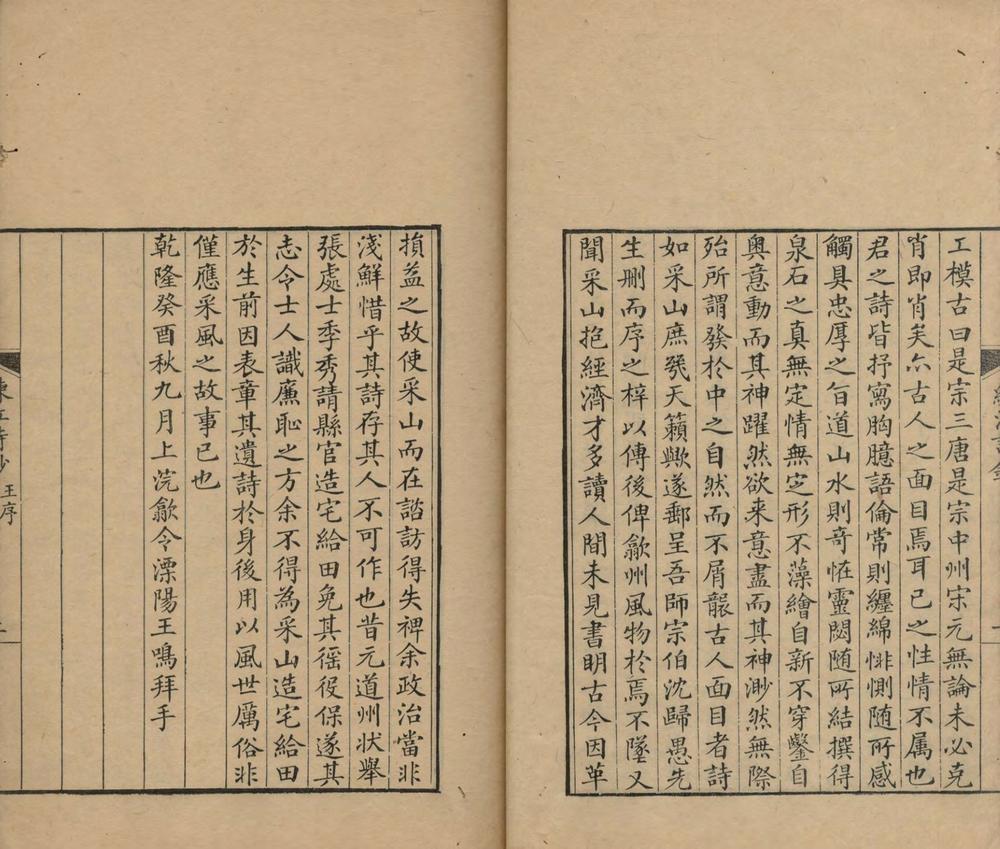 工模古曰是宗三唐是宗中州宋元無論未必克
肖即肖矣亦古人之面目焉耳己之性情不属也
君之詩皆抒寫胸臆語倫常則纏綿悱惻随所感
觸具忠厚之旨道山水則奇恠靈閟随所結撰得
泉石之真無定情無定形不藻繪自新不穿鑿自
奥意動而其神躍然欲来意盡而其神渺然無際
殆所謂發於中之自然而不屑襲古人面目者詩
如采山庶㡬天籟歟遂郵呈吾師宗伯沈歸愚先
生刪而序之梓以傳後俾歙州風物於焉不墜又
聞采山抱經濟才多讀人間未見書明古今因革
損益之故使采山而在諮訪得失裨余政治當非
淺鮮惜乎其詩存其人不可作也昔元道州状舉
張處士季秀請縣官造宅給田免其徭役保遂其
志令士人識廉恥之方余不得為采山造宅給田
於生前因表章其遺詩於身後用以風世厲俗非
僅應采風之故事已也
乾隆癸酉秋九月上浣歙令溧陽王鳴拜手
東江詩鈔 王序